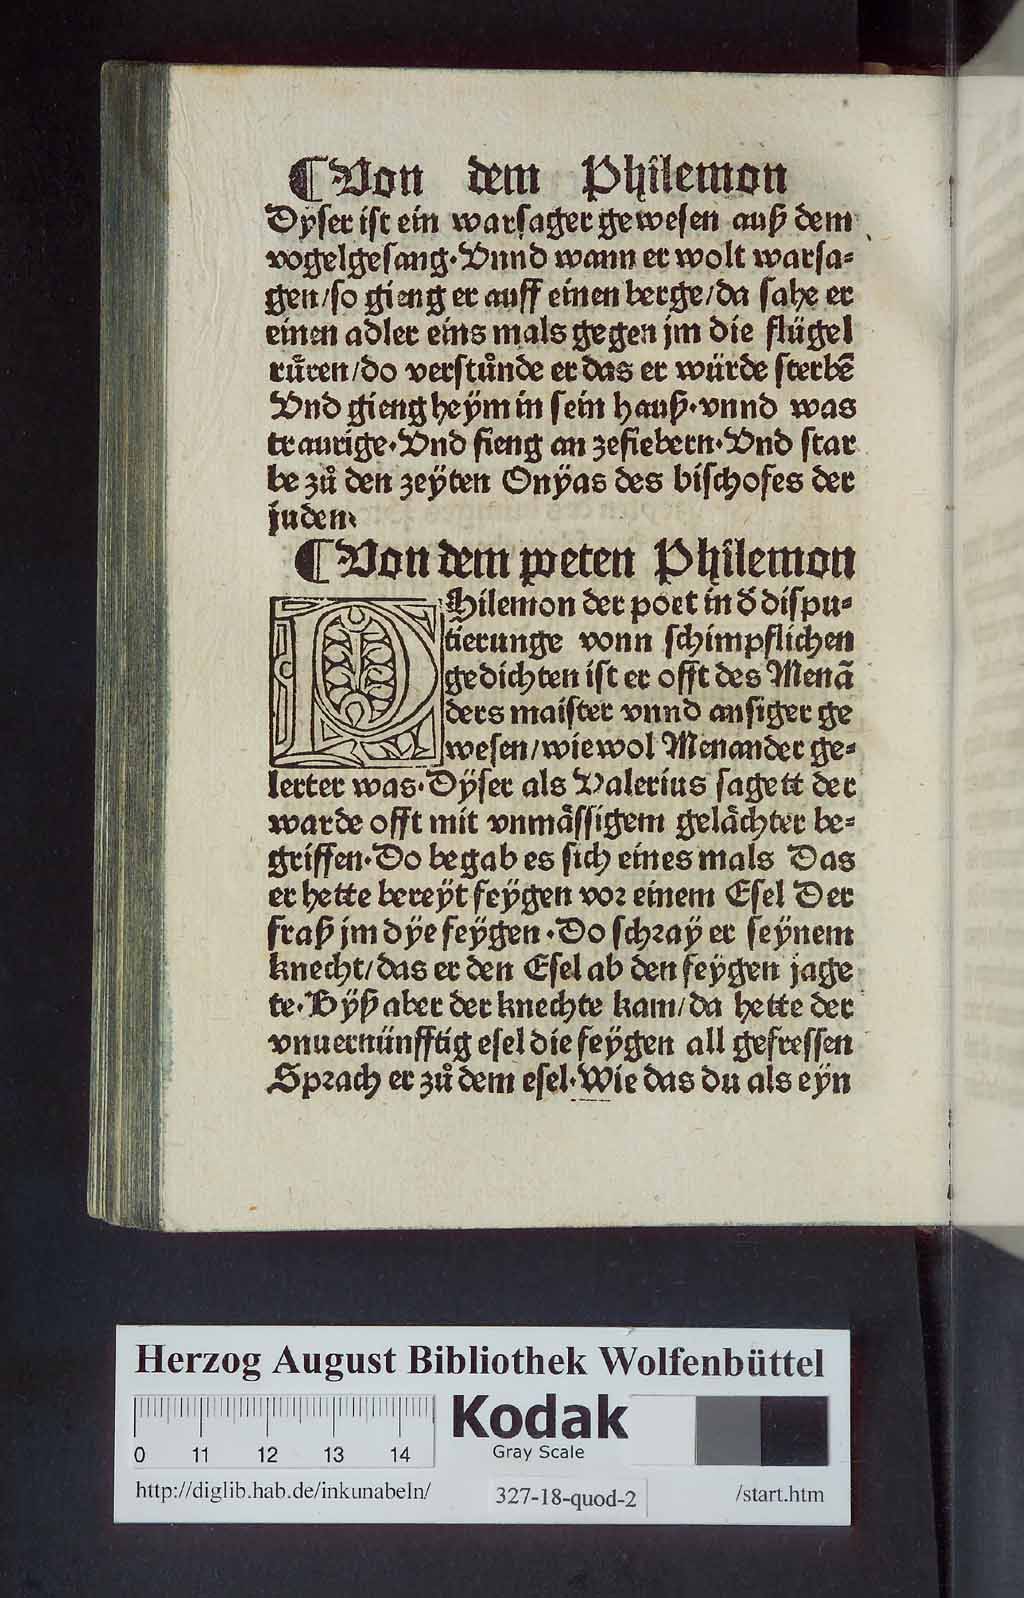 ¶ Von dem Philemon
Dyser ist ein warsager gewesen auß dem
vogelgesang. Vnnd wann er wolt warsa⸗
gen/so gieng er auff einen berge/da sahe er
einen adler eins mals gegen jm die flügel
růren/do verstůnde er das er würde sterbē
Vnd gieng heÿm in sein hauß. vnnd was
traurige. Vnd fieng an zefiebern. Vnd star
be zů den zeÿten Onÿas des bischofes der
juden.
¶ Von dem poeten Philemon
PHilemon der poet in d̕ dispu⸗
tierunge vonn schimpflichen
gedichten ist er offt des Menā
ders maister vnnd ansiger ge
wesen/wiewol Menander ge⸗
lerter was. Dÿser als Valerius sagett der
warde offt mit vnmåssigem gelåchter be⸗
griffen. Do begab es sich eines mals Das
er hette bereÿt feÿgen vor einem Esel Der
fraß jm dÿe feÿgen. Do schraÿ er seÿnem
knecht/das er den Esel ab den feÿgen jage
te. Bÿß aber der knechte kam/da hette der
vnuernünfftig esel die feÿgen all gefressen
Sprach er zů dem esel. Wie das du als eÿn
Herzog August Bibliothek Wolfenbüttel
Kodak
Gray Scale
0 11 12 13 14
http://diglib.hab.de/inkunabeln/ 327-18-quod-2 /start.htm